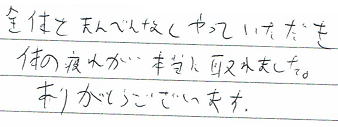 全体をまんべんなくやっていただき
体の疲れが本当に取れました。
ありがとうございます。